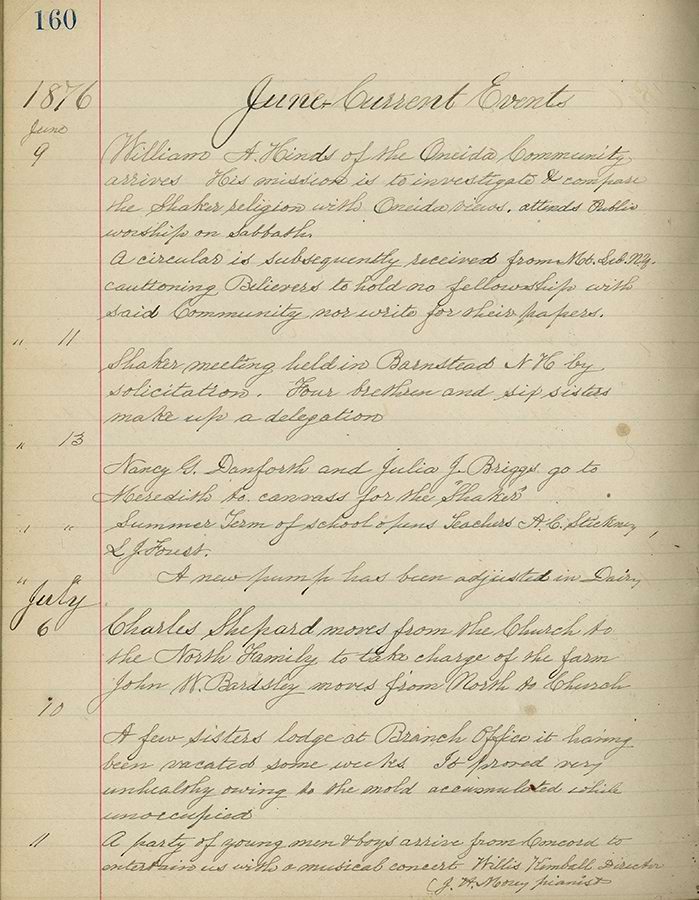 160
1876 June Current Events
June
9 William A. Hinds of the Oneida Community
arrives His mission is to investigate & compare
the Shaker religion with Oneida views. attends Public
worship on Sabbath.
A circular is subsequently received from Mt. Leb. N.Y.
cauttoning Believers to hold no fellowship with
said Community nor write for their papers.
" 11
Shaker meeting held in Barnstead N H by
solicitation. Four brethren and six sisters
make up a delegation
" 13
Nancy G. Danforth and Julia J. Briggs go to
Meredith to canvass for the "Shaker"
" " Summer Term of school opens Teachers A. C. Stickney,
L J. Forest.
" " A new pump has been adjusted in Dairy
July
6 Charles Shepard moves from the Church to
the North Family to take charge of the farm
John W. Bardsley moves from North to Church
10
A few sisters lodge at Branch Office it having
been vacated some weeks It proved very
unhealthy owing to the mold accumulated while
unoccupied
11 A party of young men & boys arrive from Concord to
entertain us with a musical concert Willis Kimball Director
(J. H. Morey pianist